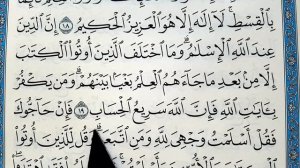 بِٱلْقِسْطِ ۚ لَآ إِلَٰهَ إِلَّا هُوَ ٱلْعَزِيزُ ٱلْحَكِيمُ ۝١٨ إِنَّ ٱلدِّينَ
عِندَ ٱللَّهِ ٱلْإِسْلَٰمُ ۗ وَمَا ٱخْتَلَفَ ٱلَّذِينَ أُوتُوا۟ ٱلْكِتَٰبَ
إِلَّا مِنۢ بَعْدِ مَا جَآءَهُمُ ٱلْعِلْمُ بَغْيًۢا بَيْنَهُمْ ۗ وَمَن يَكْفُرْ
بِـَٔايَٰتِ ٱللَّهِ فَإِنَّ ٱللَّهَ سَرِيعُ ٱلْحِسَابِ ۝١٩ فَإِنْ حَآجُّوكَ
فَقُلْ أَسْلَمْتُ وَجْهِىَ لِلَّهِ وَمَنِ ٱتَّبَعَنِ ۗ وَقُل لِّلَّذِينَ أُوتُوا۟